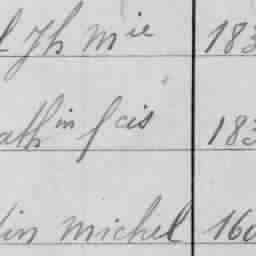 l Jh Mie 183
ath in fcis 183
lin Michel 160